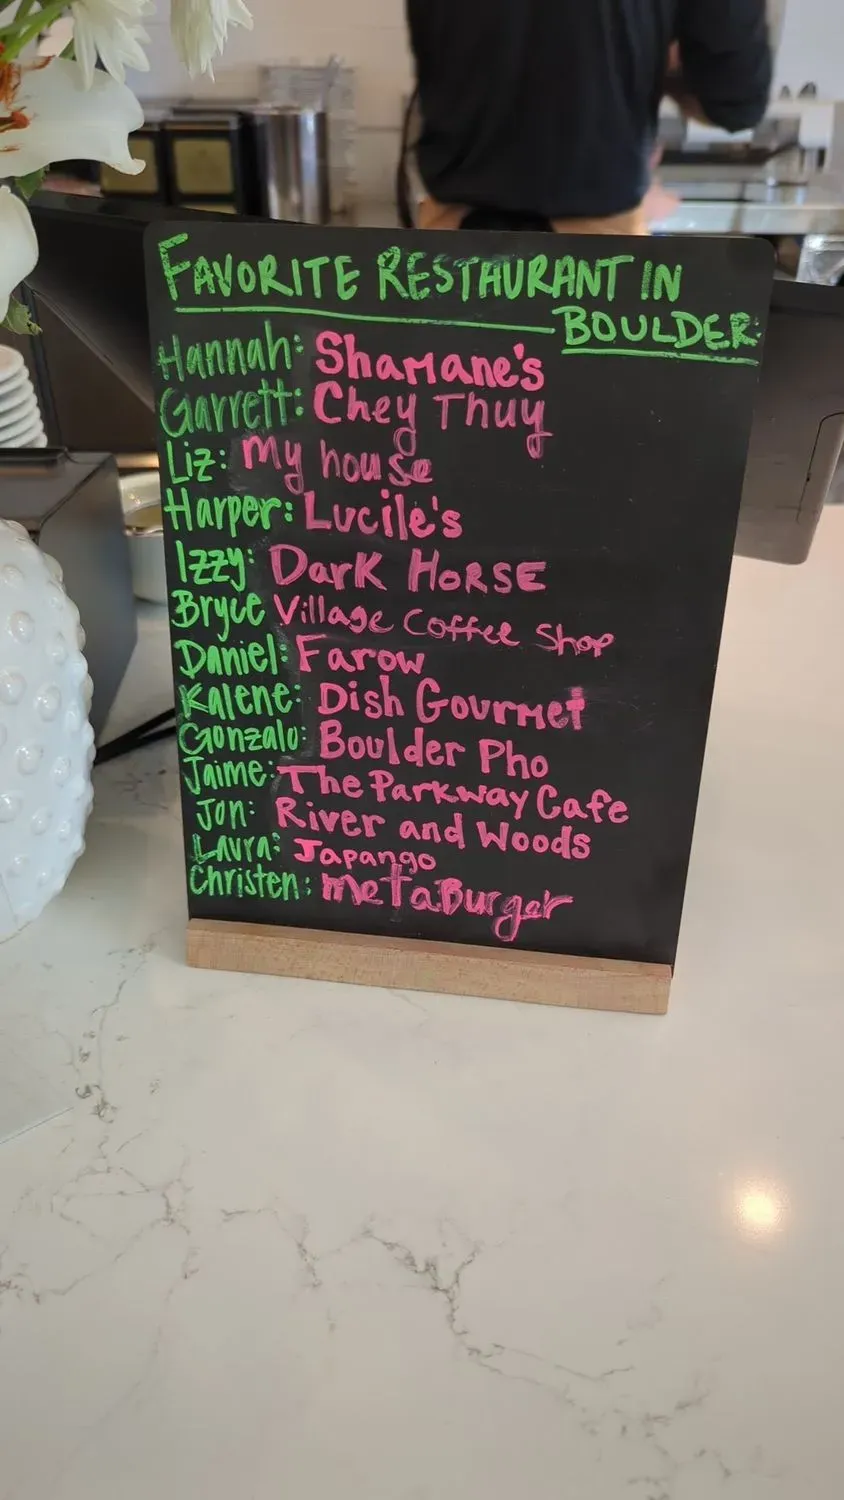 FAVORITE RESTAURANT IN
BOULDER:
Hannah: Shamane's
Garrett: Chey Thuy
Liz: My house
Harper: Lucile's
Izzy: Dark HORSE
Bryce Village Coffee Shop
Daniel: Farow
Kalene: Dish Gourmet
Gonzalo: Boulder Pho
Jaime: The Parkway Cafe
Jon: River and Woods
Laura: Japango
Christen: metaBurger